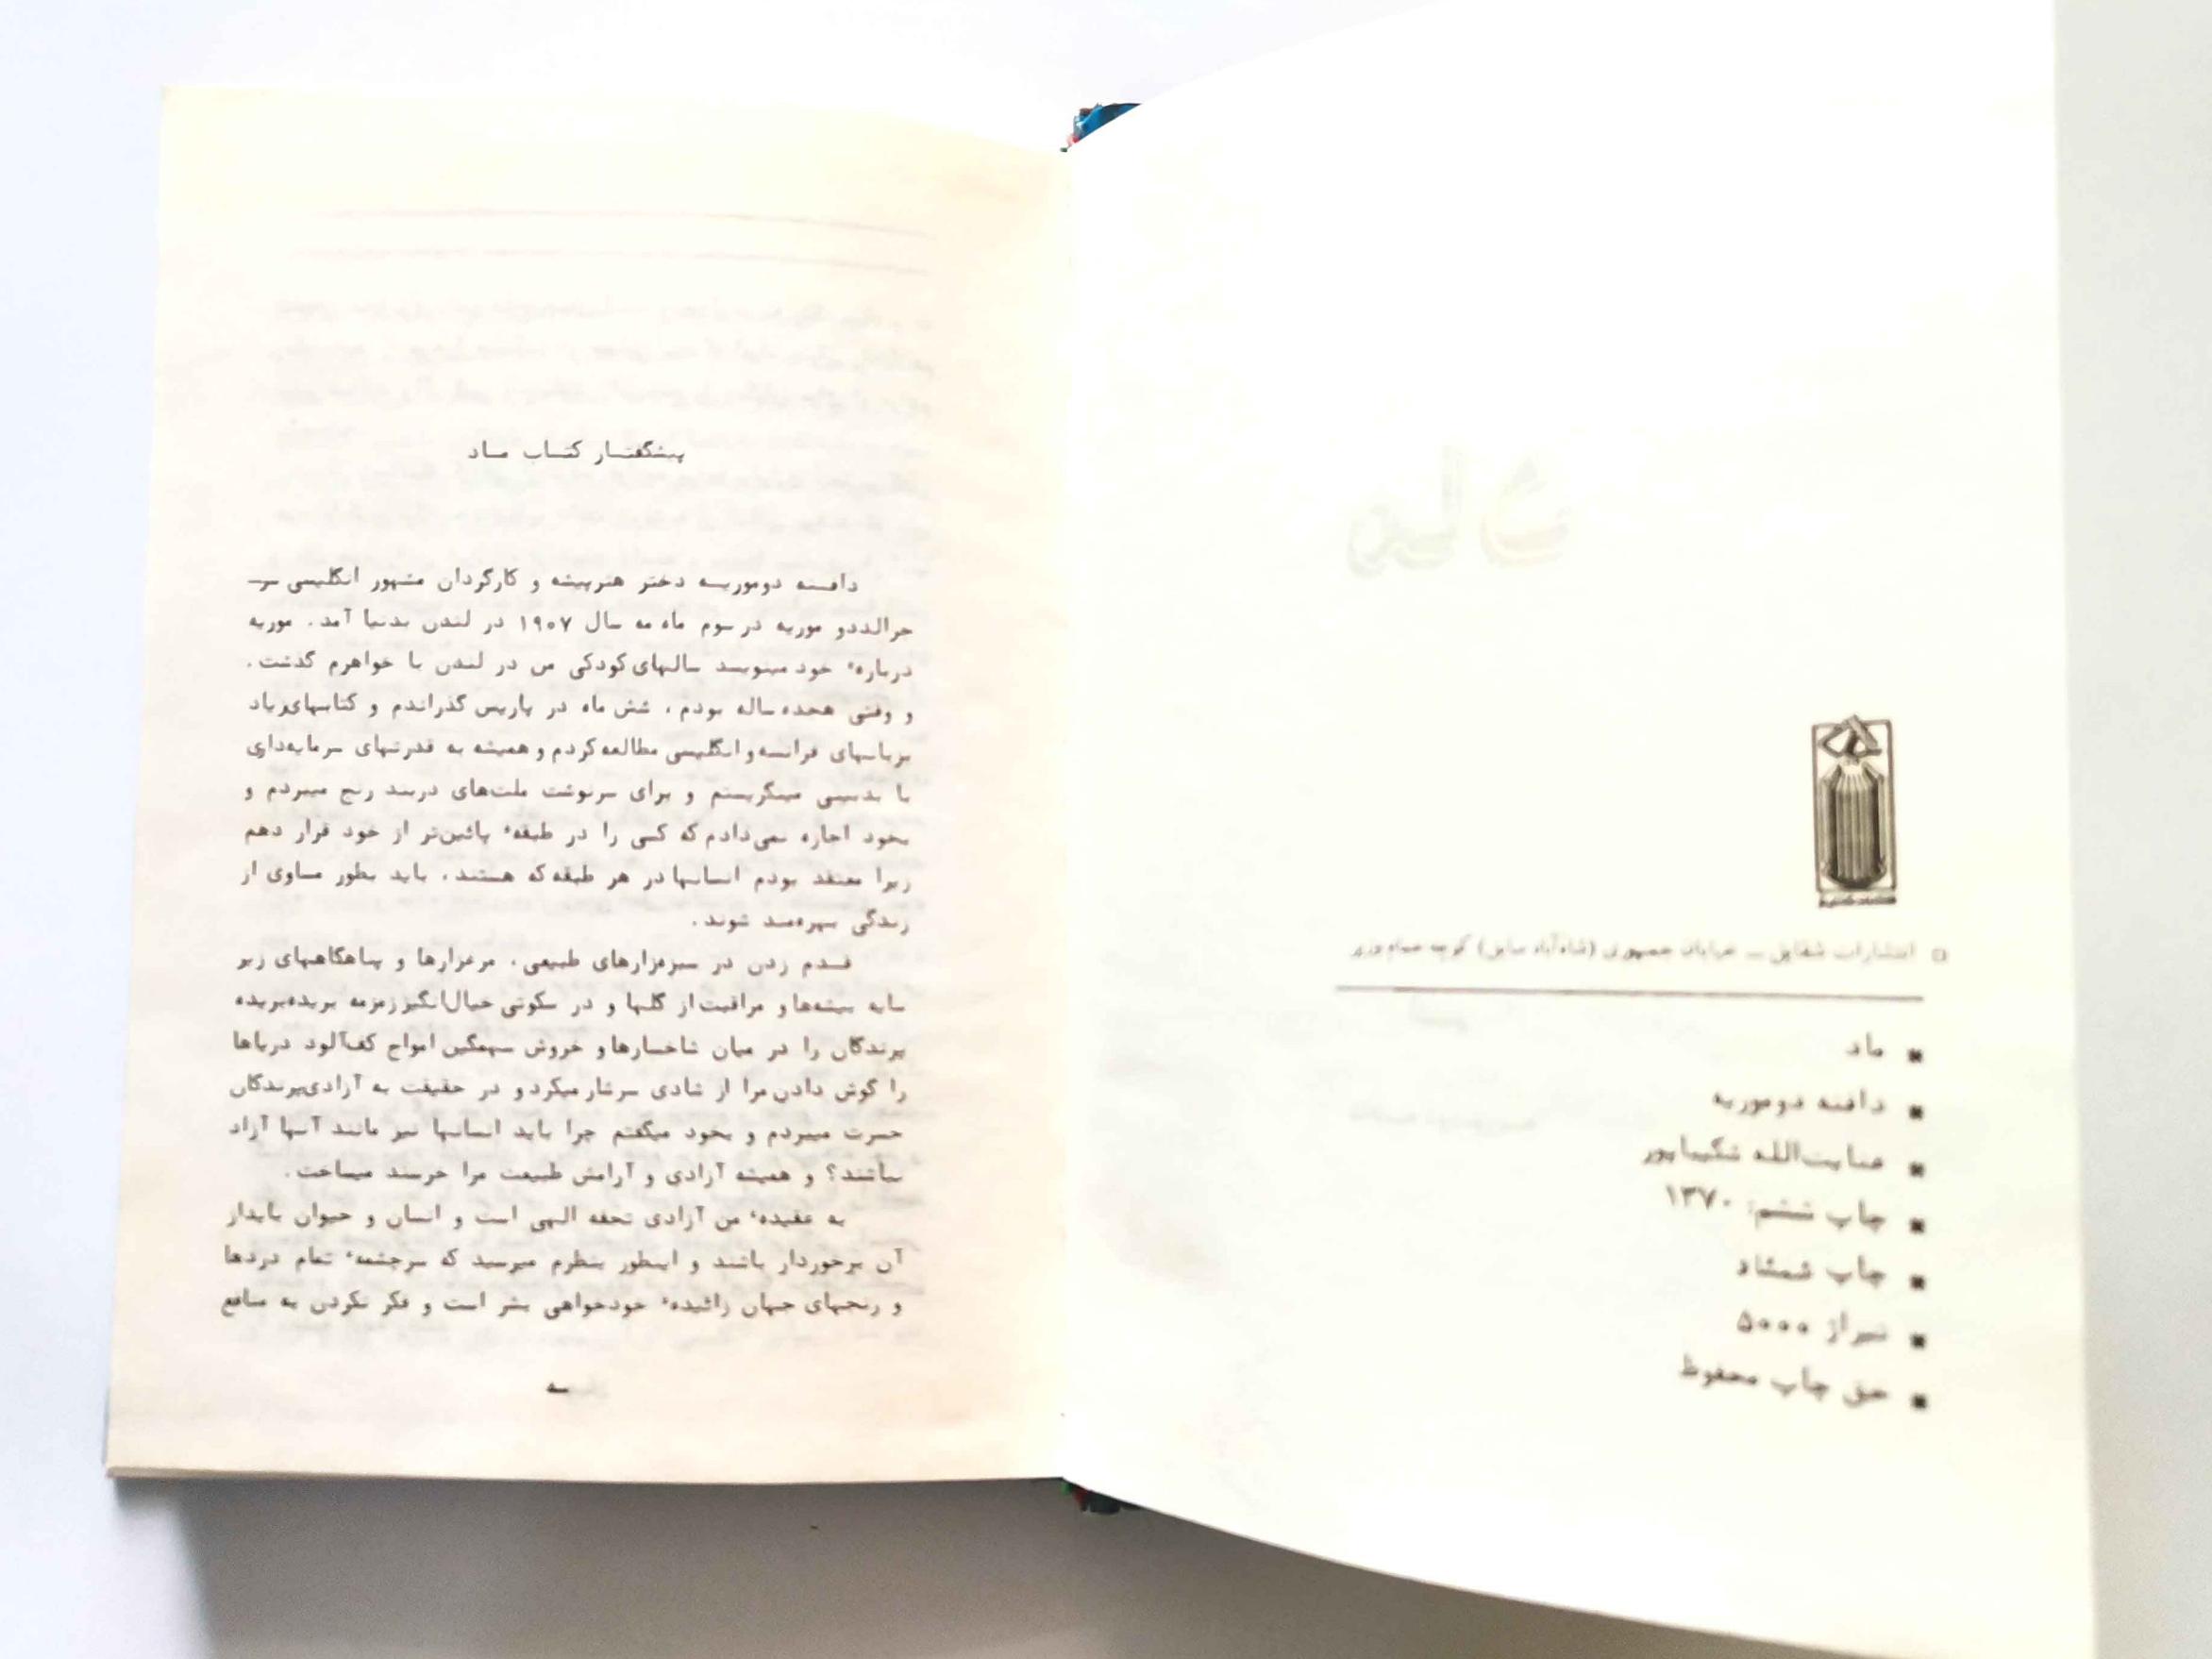 انتشارات شقایق — خیابان جمهوری (شاه‌آباد سابق) کوچه
ماد
دافنه دوموریه
عنایت‌الله شکیباپور
چاپ ششم: ۱۳۷۰
چاپ شمشاد
تیراژ ۵۰۰۰
حق چاپ محفوظ
پیشگفتار کتاب ماد
دافنه دوموریه دختر هنرپیشه و کارگردان مشهور انگلیسی سر—
جرالددو موریه در سوم ماه مه سال ۱۹۰۷ در لندن بدنیا آمد. موریه
درباره‌ٔ خود مینویسد سالهای کودکی من در لندن با خواهرم گذشت.
و وقتی هجده ساله بودم، شش ماه در پاریس گذراندم و کتابهای زیاد
بزبانهای فرانسه و انگلیسی مطالعه کردم و همیشه به قدرتهای سرمایه‌داری
با بدبینی مینگریستم و برای سرنوشت ملت‌های دربند رنج میبردم و
بخود اجازه نمی‌دادم که کسی را در طبقهٔ پائین‌تر از خود قرار دهم
زیرا معتقد بودم انسانها در هر طبقه که هستند، باید بطور مساوی از
زندگی بهره‌مند شوند.
قدم زدن در سبزه‌زارهای طبیعی، مرغزارها و پناهگاههای زیر
سایه بیشه‌ها و مراقبت از گلها و در سکوتی خیال‌انگیز زمزمه بریده‌بریده
پرندگان را در میان شاخسارها و خروش سهمگین امواج کف‌آلود دریاها
را گوش دادن مرا از شادی سرشار میکرد و در حقیقت به آزادی پرندگان
حسرت میبردم و بخود میگفتم چرا باید انسانها نیز مانند آنها آزاد
نباشند؟ و همیشه آزادی و آرامش طبیعت مرا خرسند میساخت.
به عقیدهٔ من آزادی تحفه الهی است و انسان و حیوان بایداز
آن برخوردار باشند و اینطور بنظرم میرسید که سرچشمهٔ تمام دردها
و رنجهای جهان زائیدهٔ خودخواهی بشر است و فکر نکردن به منافع
سه